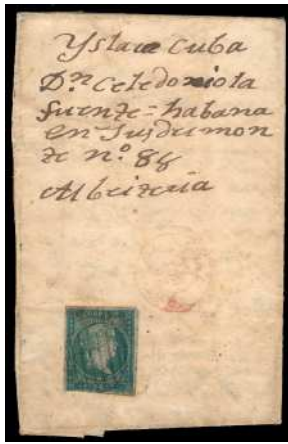 Ysla de Cuba
Dn Celedonio la
fuente = habana
en Jusdemon
te n.º 88
Albeiteria